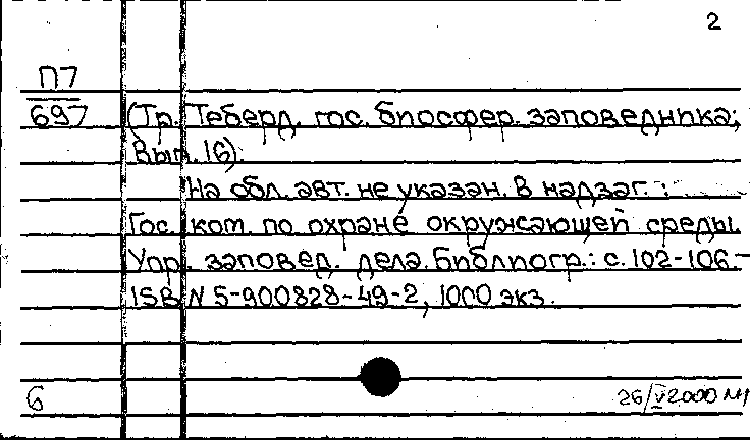 2
П7
697 (Тр. Теберд. гос. биосфер. заповедника;
Вып. 16).
На обл. авт. не указан. В надзаг.:
Гос. ком. по охране окружающей среды.
Упр. заповед. дела. Библиогр.: с. 102-106.-
ISBN 5-900828-49-2, 1000 экз.
6
26/V 2000